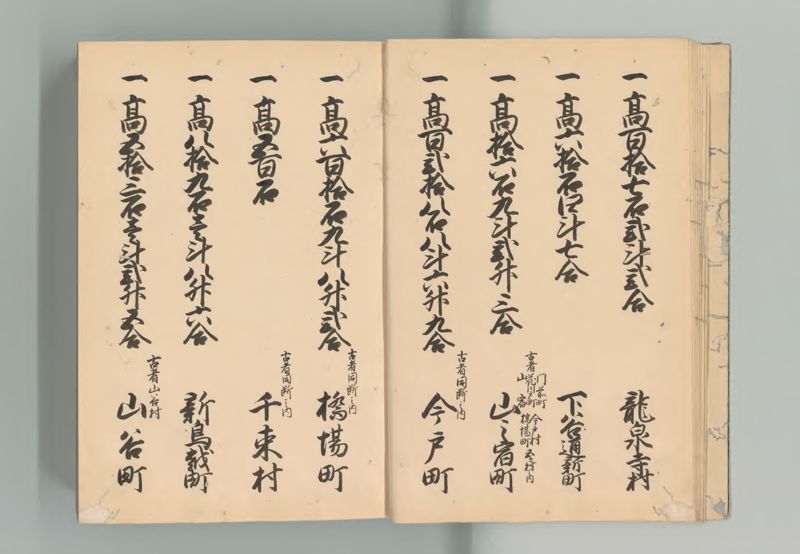 一高百拾七石弐斗弐合 龍泉寺村
一高六拾石四斗七合 下谷通新町
一高拾六石九斗弐升三合 古者 門前町 花川戸町 今戸村 山之宿 橋場町 五ヶ村内 山之宿町
一高百弐拾八石八斗六升九合 古者同断之内 今戸町
一高六百拾石九斗八升弐合 古者同断之内 橋場町
一高五百石 古者同断之内 千束村
一高八拾九石壱斗八升六合 新鳥越町
一高五拾三石壱斗弐升五合 古者山谷村 山谷町